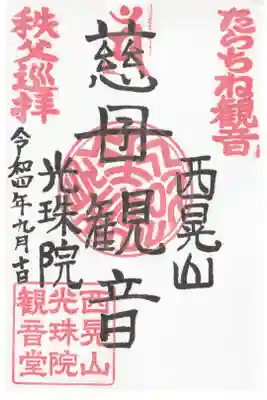 たらちね観音
西晃山
慈母観音
光珠院
秩父巡拝
令和四年九月十日
西晃山
光珠院
観音堂